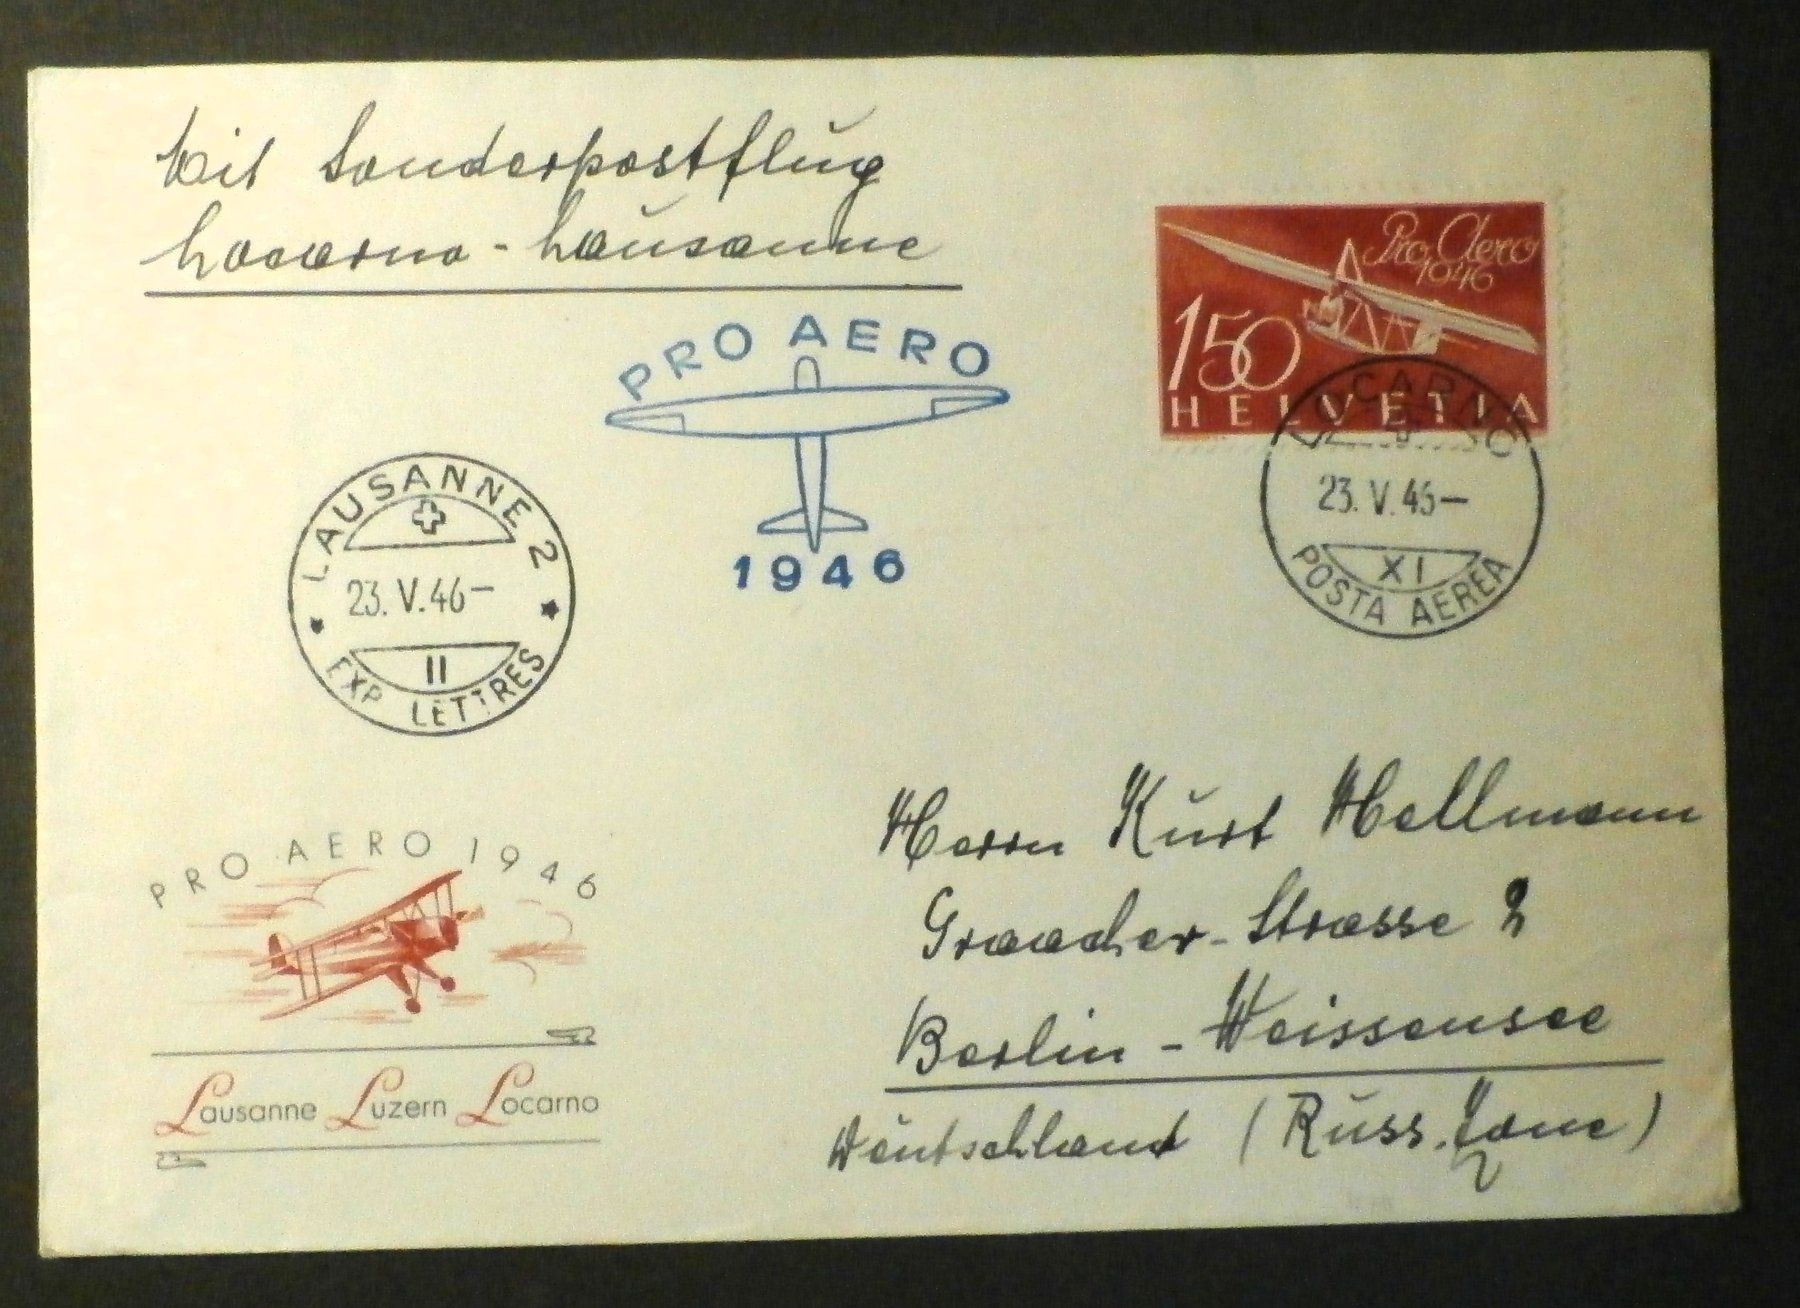 Mit Sonderpostflug
Locarno - Lausanne
Pro Aero
1946
150
HELVETIA
PRO AERO
1946
LOCARNO
23. V. 46 —
XI
POSTA AEREA
LAUSANNE 2
23. V. 46 —
II
EXP. LETTRES
PRO AERO 1946
Lausanne Luzern Locarno
Herrn Kurt Hellmann
Graacher - Strasse 2
Berlin - Weissensee
Deutschland (Russ. Zone)